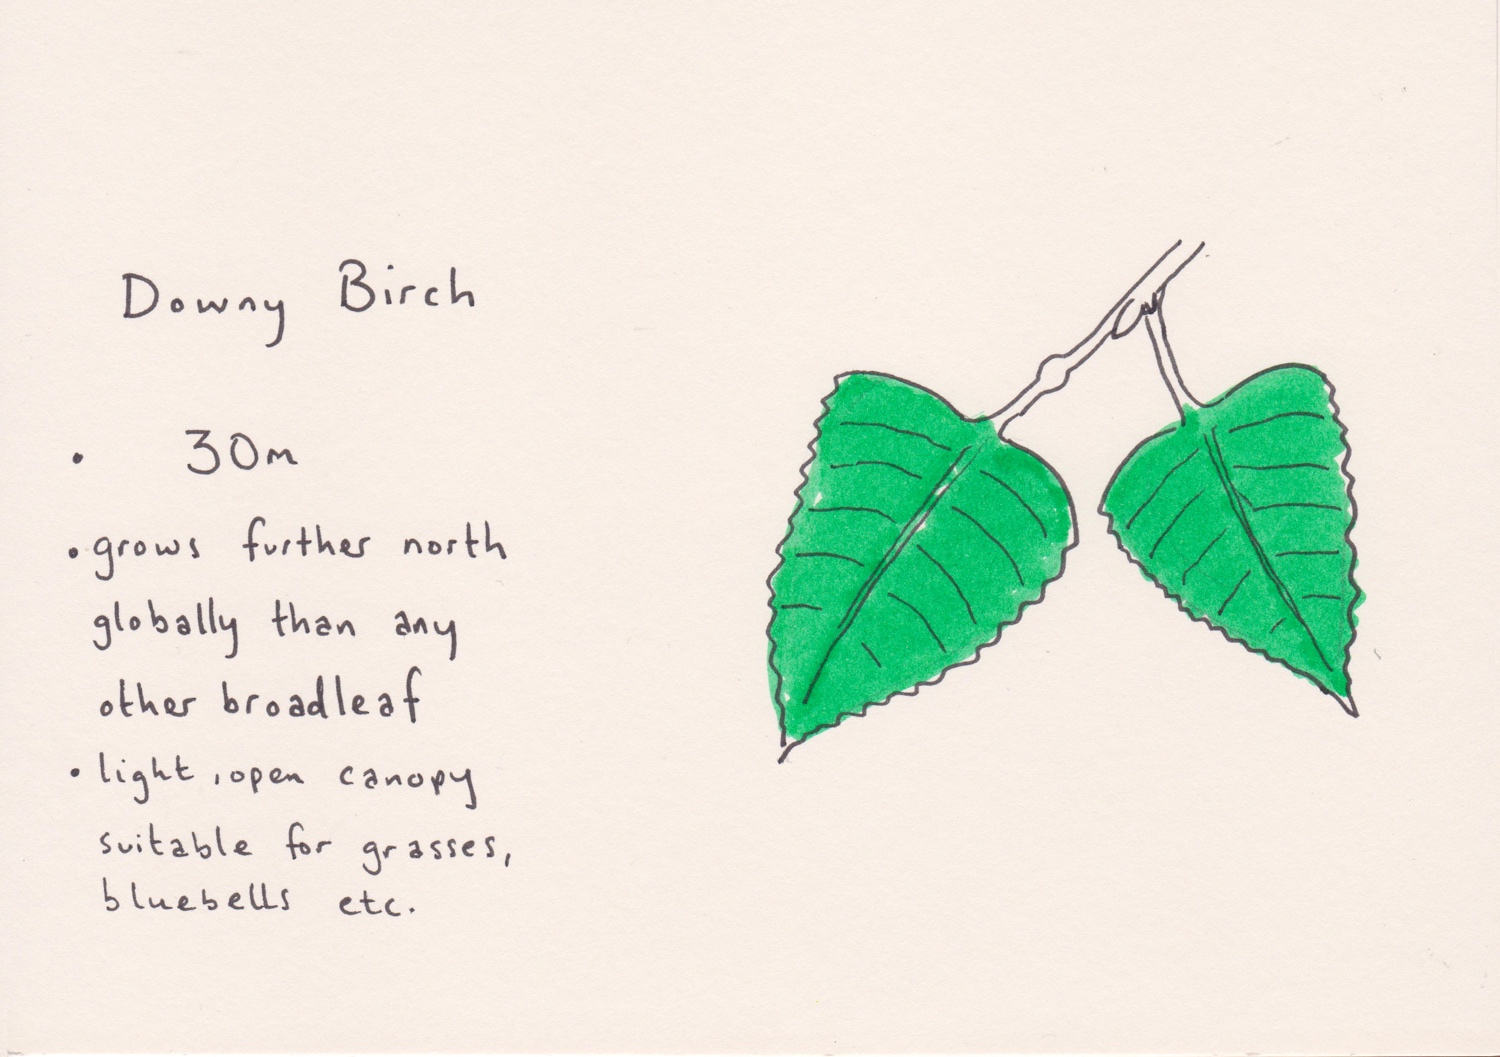 Downy Birch
• 30m
• grows further north
globally than any
other broadleaf
• light, open canopy
suitable for grasses,
bluebells etc.